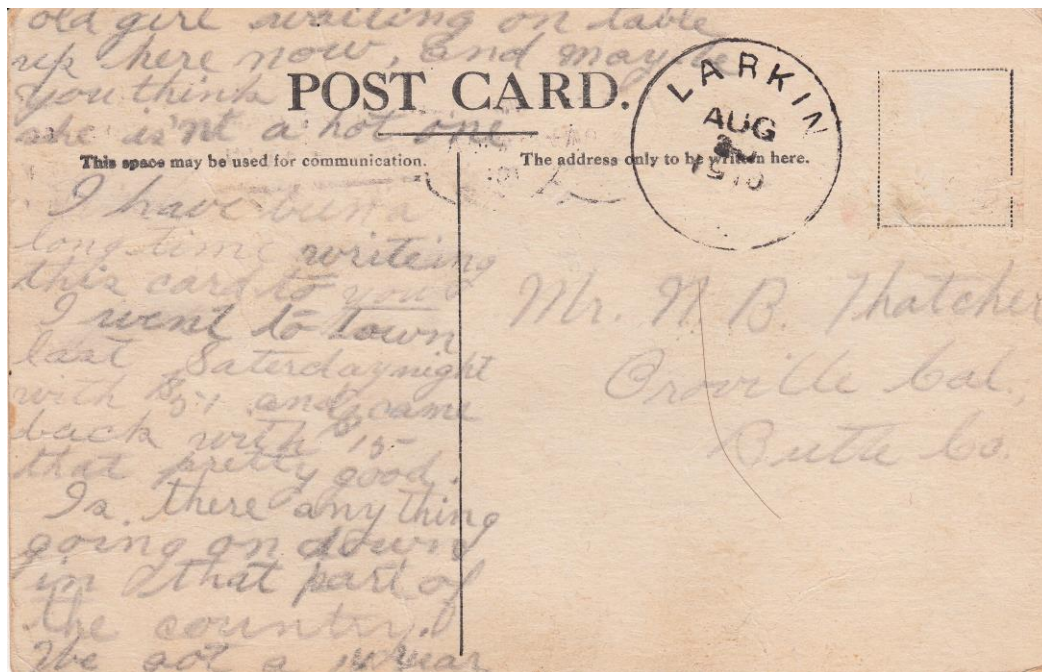 old girl waiting on table
up here now, and may be
you think
she is'nt a hot one
POST CARD.
This space may be used for communication.
The address only to be written here.
LARKIN
AUG
1910
I have bun a
long time writeing
this card to you
I went to town
last Saterday night
with $5- and came
back with $15-
that pretty good.
Is there any thing
going on down
in that part of
the country.
We got a 16 year
Mr. N. B. Thatcher
Oroville Cal.,
Butte Co.